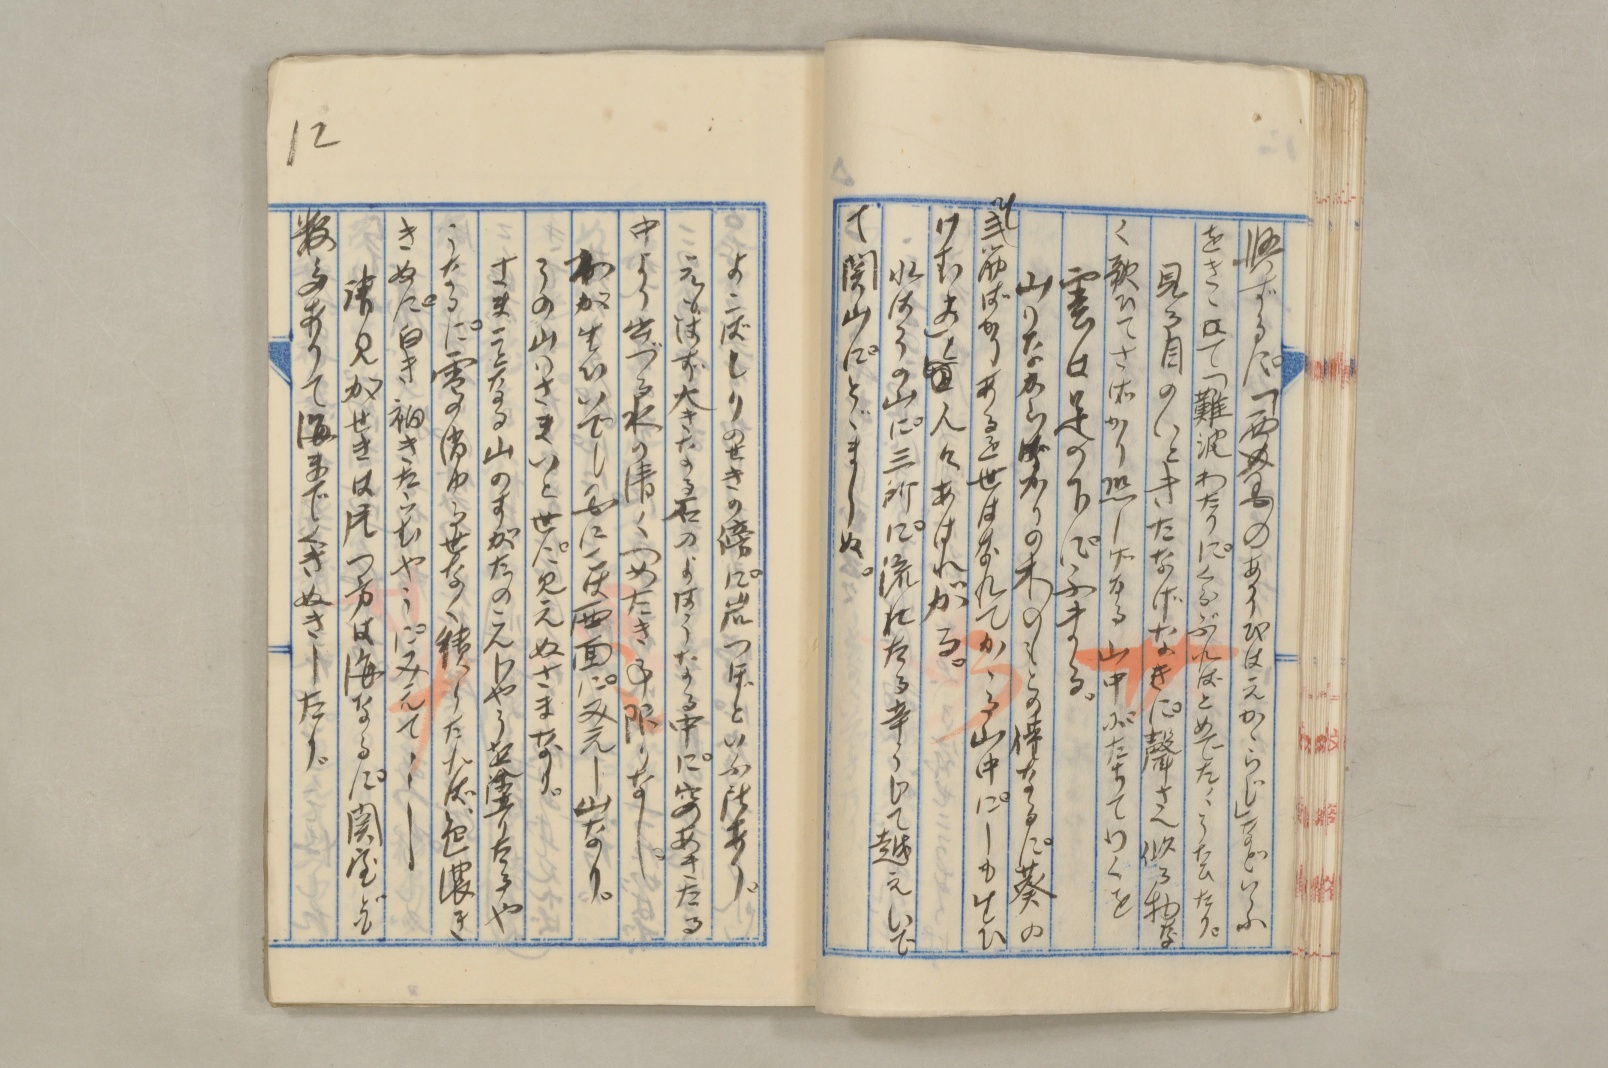 興ずるに「西國のあそびはえかゝらじ」などいふ
をきゝて「難波わたりにくらぶればとめでたくうたひたり。
見る目のいときたなげなきに聲さへ似る物な
く歌ひてさばかり恐しげなる山中にたちてゆくを
雲は足の下にふまる。
山のなからばかりの木のもとの傍なるに葵の
三筋ばかりあるを世はなれてかゝる山中にしも生ひ
けむよ」と人々あはれがる。
水はその山に三所に流れたる辛うじて越えいで
て関山にとゞまりぬ。
12
よこばしりのせきの傍に岩つぼといふ所あり。
えもいはず大きなる石のよほうなる中に穴のあきたる
中より出づる水の清くつめたき事限りなし。
わが生ひいでし國に西面にみえし山なり。
その山のさまいと世に見えぬさまなり。
さまことなる山のすがたのこんじやうを塗りたるや
うなるに雪の消ゆる世なく積りたれば、色濃き
きぬに白き衵きたらむやうにみえて
清見がせきは片つ方は海なるに関屋ども
数多ありて海までくぎぬきしたり。